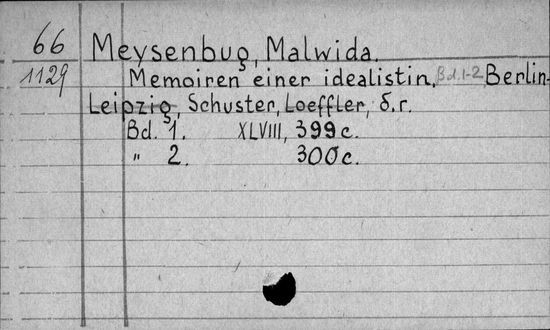 66 Meysenbug, Malwida.
1129 Memoiren einer idealistin. Bd.1-2 Berlin-
Leipzig, Schuster, Loeffler, б.г.
Bd. 1. XLVIII, 399c.
" 2. 300c.